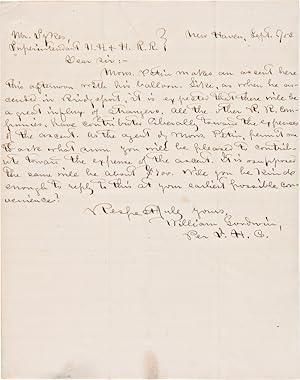 Mr. Sykes,
Superintendent N.H. & H. R.R. } New Haven, Sept. 9/52
Dear Sir:-
Mons. Petin makes an ascent here
this afternoon with his balloon. Like, as when he as-
cended in Bridgeport, it is expected that there will be
a great influx of strangers. All the other R.R. Com-
panies, have contributed liberally toward the expenses
of the ascent. As the agent of Mons Petin, permit me
to ask what sum you will be pleased to contrib-
ute toward the expense of the ascent. It is supposed
the same will be about $500. Will you be kind
enough to reply to this at your earliest possible con-
venience?
Respectfully yours,
William Goodwin,
Per V. H. C.